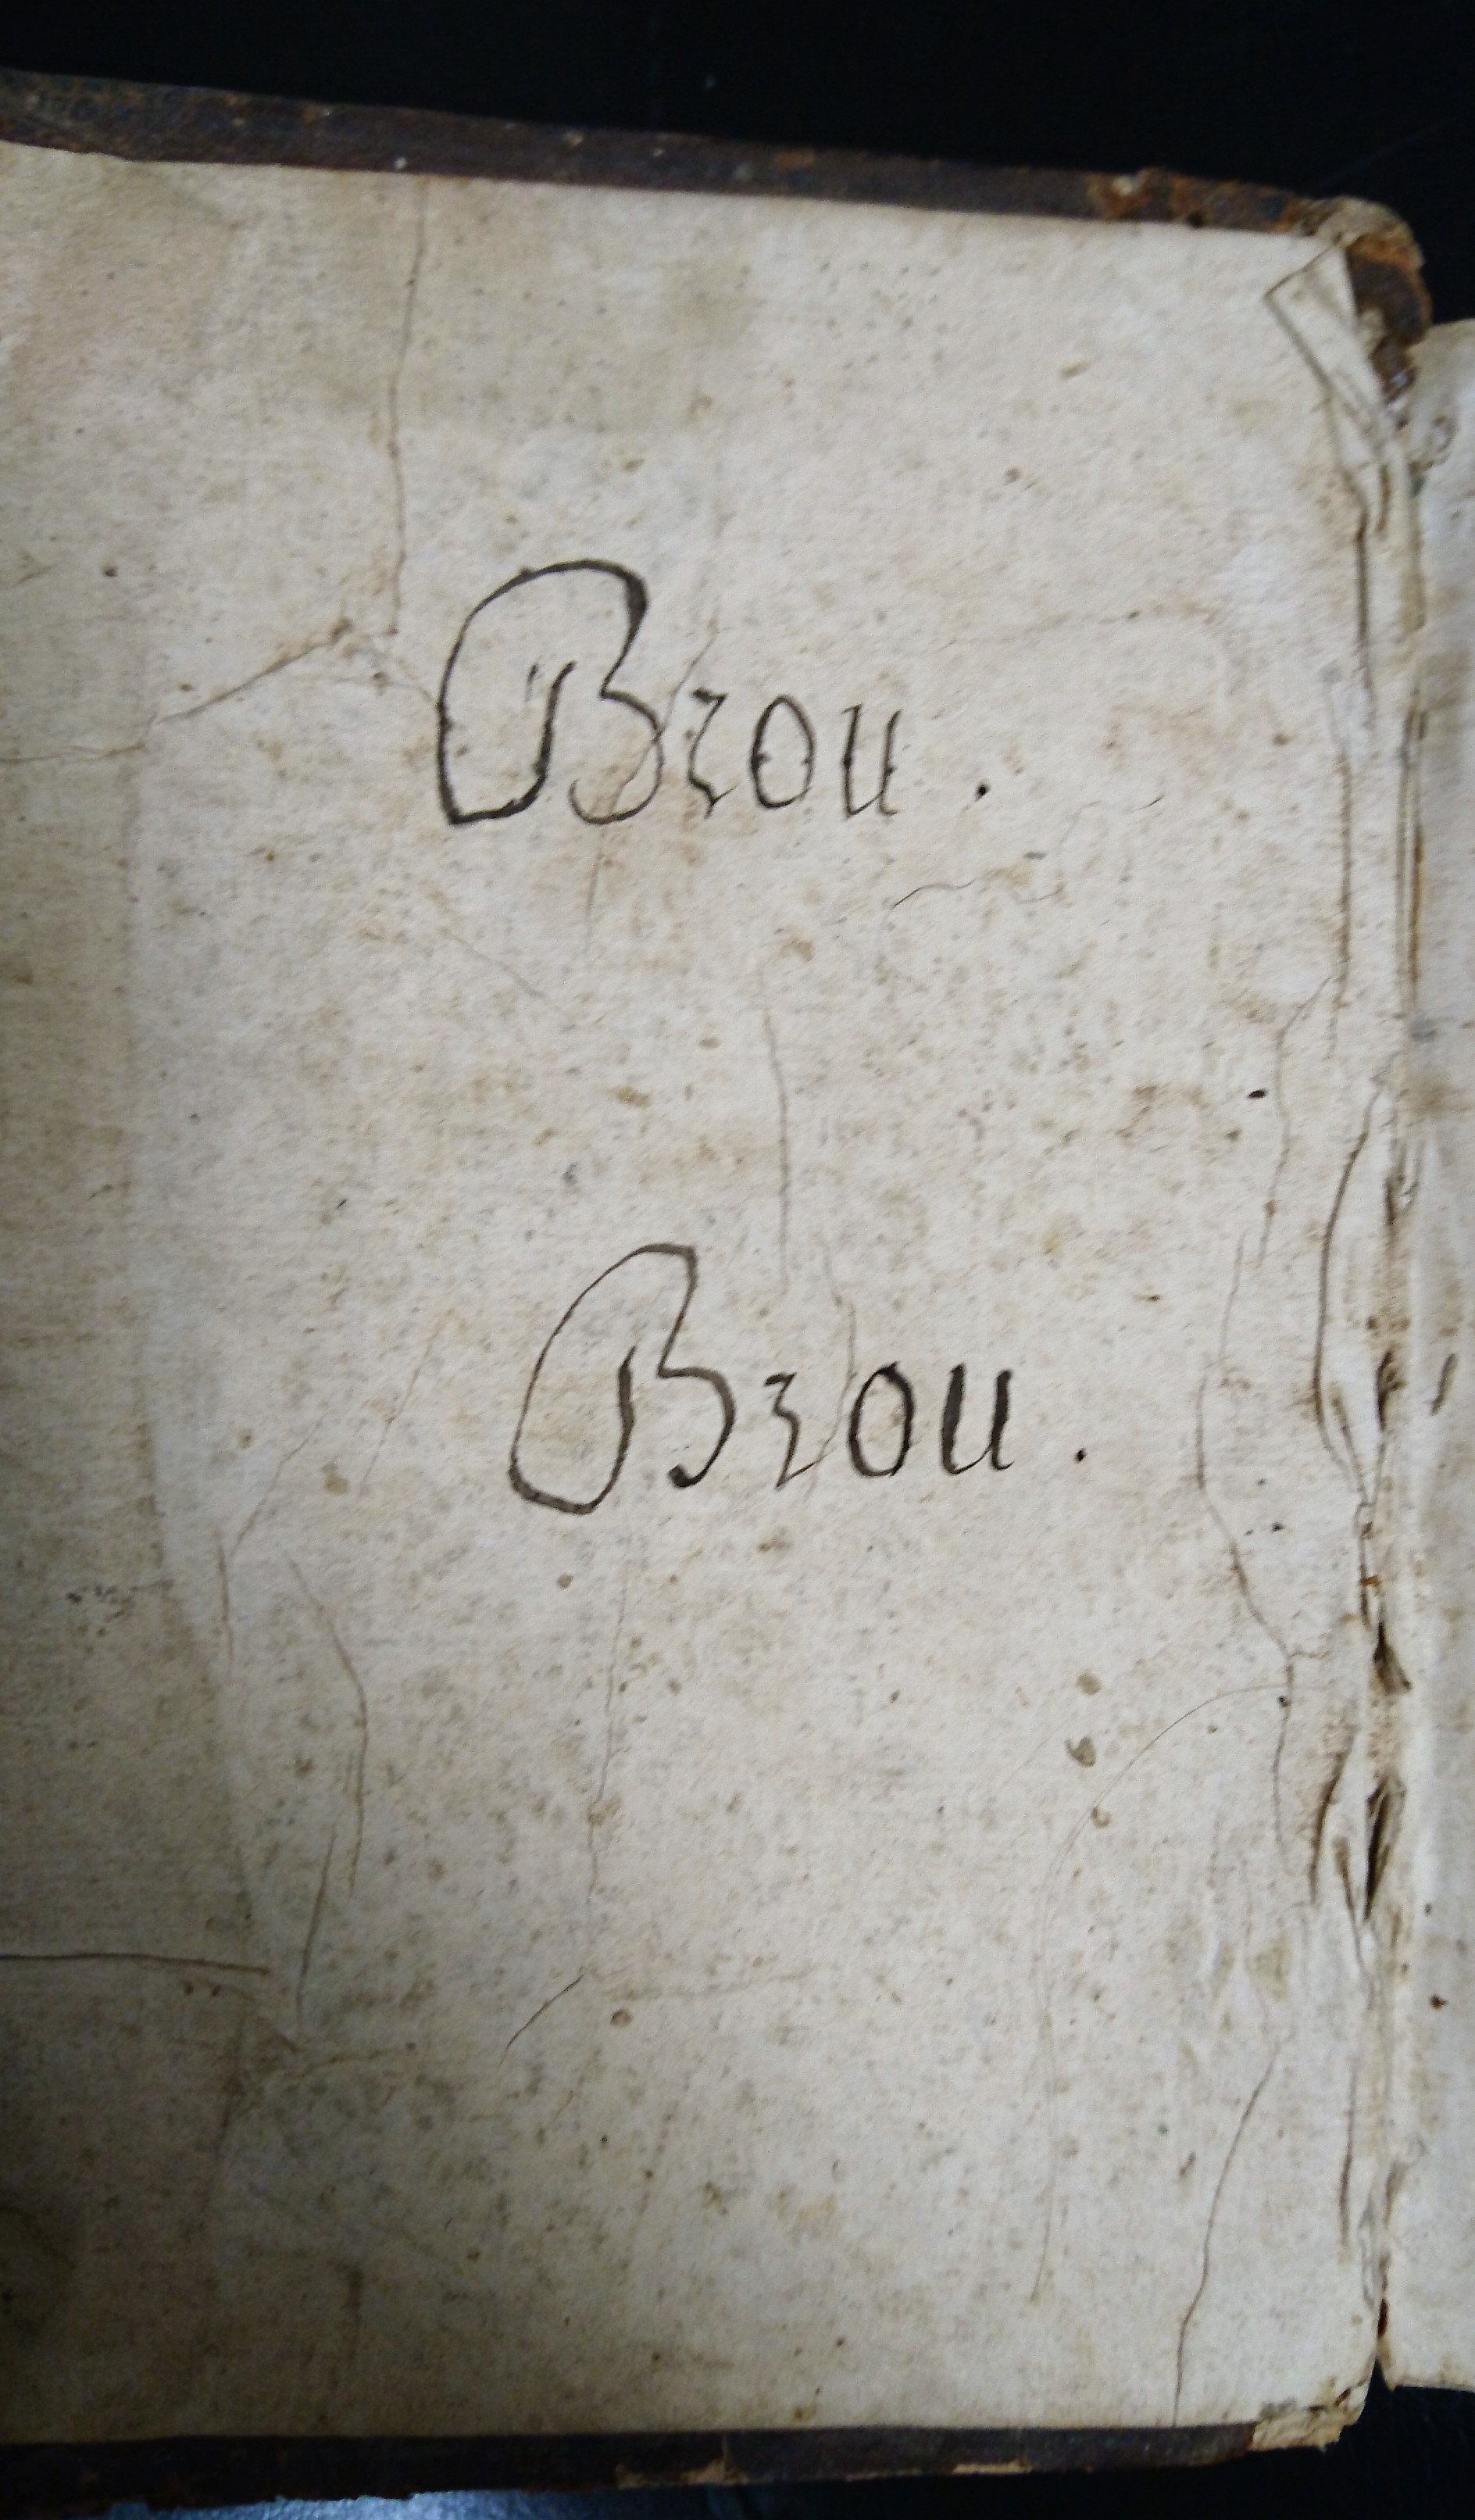 Brou.
Brou.